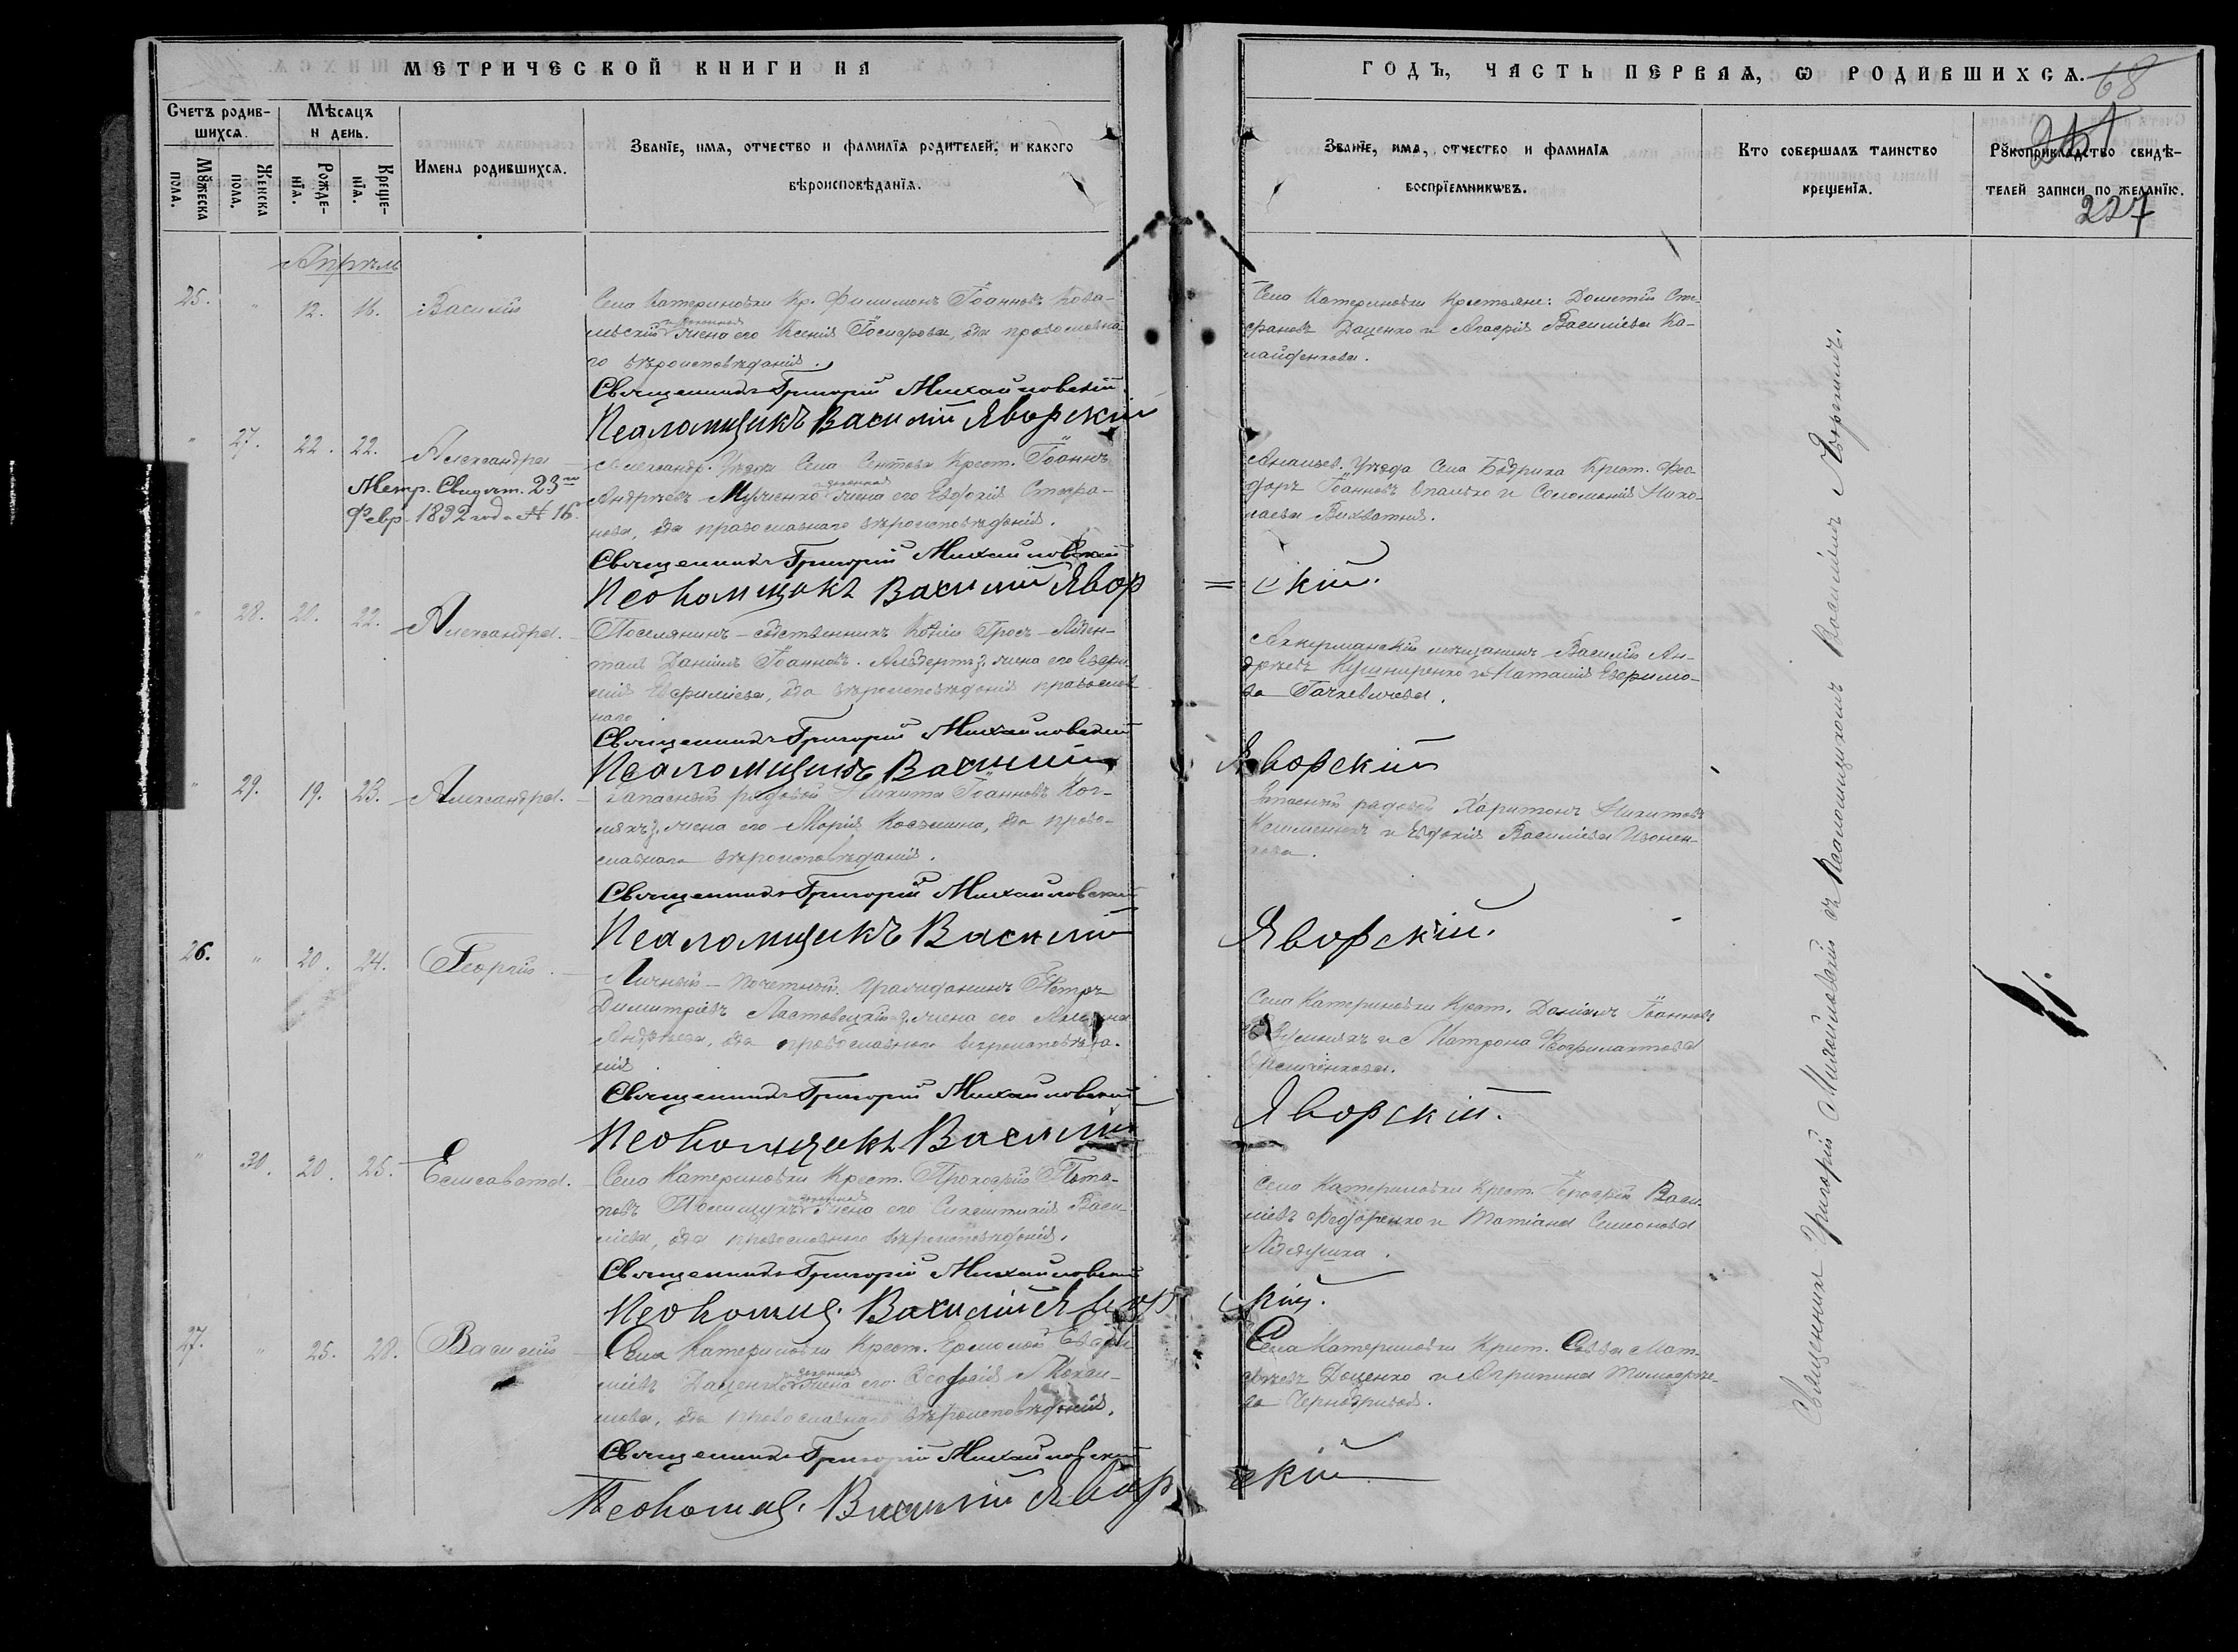 МЕТРИЧЕСКОЙ КНИГИ НА
ГОДЪ, ЧАСТЬ ПЕРВАЯ, Ѡ РОДИВШИХСЯ.
68
Счетъ родив-
шихся.
Мѣсяцъ
и день.
Мꙋжеска
пола.
Женска
пола.
Рожде-
нїя.
Креще-
нїя.
Имена родившихся.
Званїе, имя, отчество и фамилїя родителей, и какого
вѣроисповѣданїя.
Званїе, имя, отчество и фамилїя
воспрїемникѡвъ.
Кто совершалъ таинство
крещенїя.
Рꙋкоприкладство свидѣ-
телей записи по желанїю.
227
Апрѣль
25. " 12. 16. Василій
Села Катериновки Кр. Филимонъ Іоанновъ Кова-
льскій и законная жена его Ксенія Іосифова, оба православна-
го вѣроисповѣданія.
Священникъ Григорій Михайловскій
Псаломщикъ Василій Яворскій
Села Катериновки Крестьяне: Дометій Сте-
фановъ Даценко и Агафія Василіева Ка-
лайденкова.
" 27. 22. 22. Александра
Метр. Свидѣт. 23го
Февр. 1892 года № 16.
Александр. Уѣзда Села Сентова Крест. Іоаннъ
Андреевъ Мученко и законная жена его Евдокія Стефа-
нова, оба православнаго вѣроисповѣданія.
Священникъ Григорій Михайловскій
Псаломщикъ Василій Явор
= скій.
Ананьев. Уѣзда Села Бодриха Крест. Фео-
доръ Іоанновъ и Соломонія Нико-
лаева
" 28. 20. 22. Александра.
Поселянинъ-собственникъ Колоніи Гросъ-Либен-
таль Даніилъ Іоанновъ Альбертъ и жена его Евфи-
мія Евфиміева, оба вѣроисповѣданія православ
наго.
Священникъ Григорій Михайловскій
Псаломщикъ Василій
Яворскій
Аккерманскій мѣщанинъ Василій Ан-
дреевъ Кушниренко и Наталія Евфимо-
ва Гачкевичева.
" 29. 19. 23. Александра.
Запасный рядовой Никита Іоанновъ Ког-
лякъ и жена его Марія Косьмина, оба право-
славнаго вѣроисповѣданія.
Священникъ Григорій Михайловскій
Псаломщикъ Василій
Яворскій.
Запасный рядовой Харитонъ Никитовъ
и Евдокія Василіева
26. " 20. 24. Георгій.
Личный-почетный гражданинъ Петръ
Димитріевъ Ластовецкій и жена его
Андреева, оба православнаго вѣроисповѣда-
нія.
Священникъ Григорій Михайловскій
Псаломщикъ Василій
Яворскій.
Села Катериновки Крест. Даніилъ Іоанновъ
и Матрона Феофилактова
" 30. 20. 25. Елисавета.
Села Катериновки Крест. Прокофій Пота-
повъ Полищукъ и законная жена его Синклитикія Васи-
ліева, оба православнаго вѣроисповѣданія.
Священникъ Григорій Михайловскій
Псаломщ. Василій Явор
скій.
Села Катериновки Крест. Іерофей Васи-
ліевъ Федоренко и Татіана Симонова
27. " 25. 28. Василій
Села Катериновки Крест. Ермолай Евфи-
міевъ Даценко и законная жена его Феодосія
оба православнаго вѣроисповѣданія.
Священникъ Григорій Михайловскій
Псаломщ. Василій Явор
скій
Села Катериновки Крест. Савва Мат-
фѣевъ Доценко и Агрипина Тимофѣе-
ва Чернобривая.
Священникъ Григорій Михайловскій съ Псаломщикомъ Василіемъ Яворскимъ.